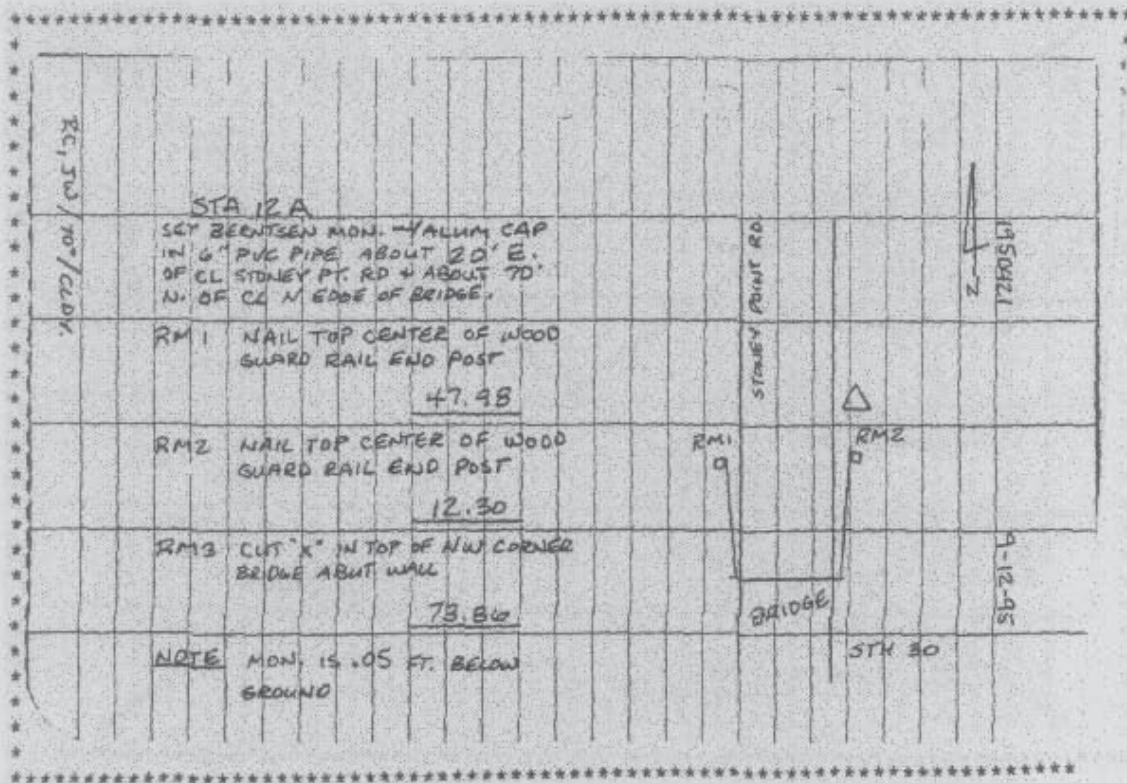 RC, JW / 70° / CLDY.
STA 12 A
SET BERNTSEN MON. W/ALUM CAP
IN 6" PVC PIPE ABOUT 20' E.
OF CL STONEY PT. RD & ABOUT 70'
N. OF CL N EDGE OF BRIDGE.
RM 1 NAIL TOP CENTER OF WOOD
GUARD RAIL END POST
47.98
RM2 NAIL TOP CENTER OF WOOD
GUARD RAIL END POST
12.30
RM3 CUT "X" IN TOP OF NW CORNER
BRIDGE ABUT WALL
73.86
NOTE MON. IS .05 FT. BELOW
GROUND
STONEY POINT RD.
RM1
RM2
BRIDGE
STH 30
N
1950421
9-12-95